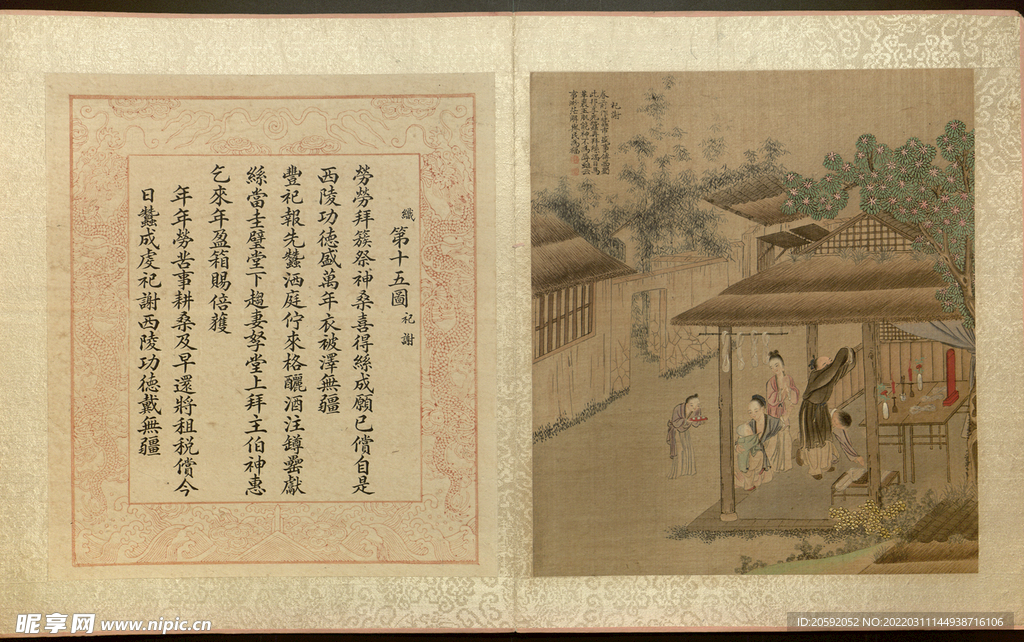 織第十五圖祀謝
勞勞拜簇祭神桑喜得絲成願已償自是
西陵功德盛萬年衣被澤無疆
豐祀報先蠶洒庭佇來格釃酒注鐏罍獻
絲當圭璧堂下趨妻孥堂上拜主伯神惠
乞來年盈箱賜倍獲
年年勞苦事耕桑及早還將租稅償今
日蠶成虔祀謝西陵功德戴無疆
祀謝
昵享网 www.nipic.cn
ID:20592052 NO:20220311144938716106